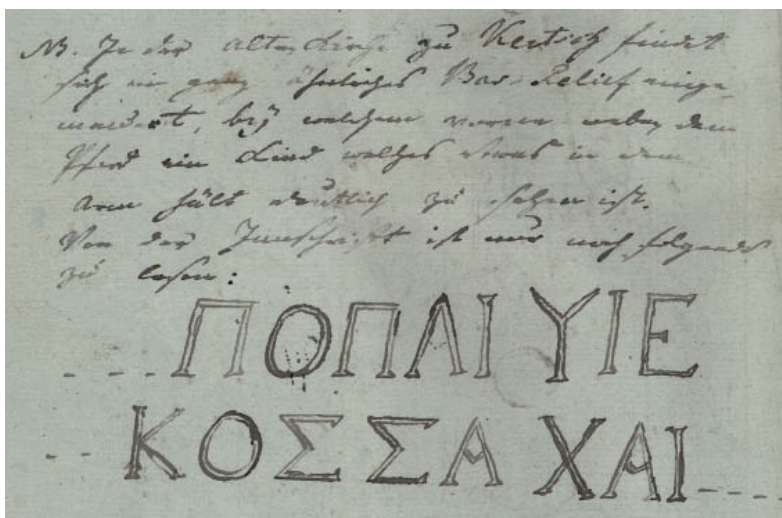 NB. In der alten Kirche zu Kertsch findet
sich ein ganz ähnliches Bas-Relief einge
mauert, bey welchem vorne neben dem
Pferd ein Kind welches etwas in dem
Arm hält deutlich zu sehen ist.
Von der Innschrift ist nur noch folgendes
zu lesen:
- - . . ΠΟΠΛΙ ΥΙΕ
- - ΚΟΣΣΑ ΧΑΙ - - - -